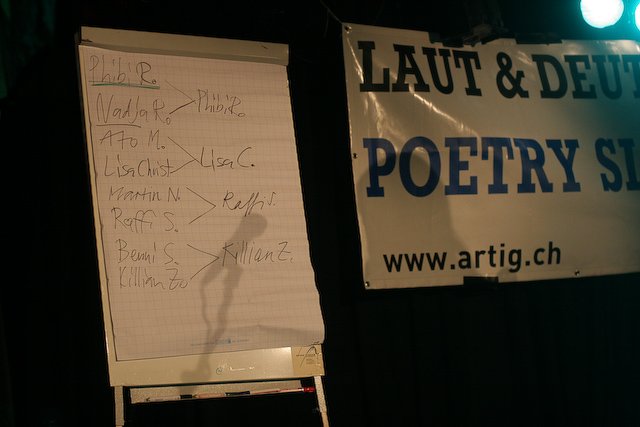 Phibi R.
Nadja R.
Phibi R.
Ato M.
Lisa Christ
Lisa C.
Martin N.
Raffi S.
Raffi S.
Benni S.
Killian Z.
Killian Z.
LAUT & DEUT
POETRY SL
www.artig.ch